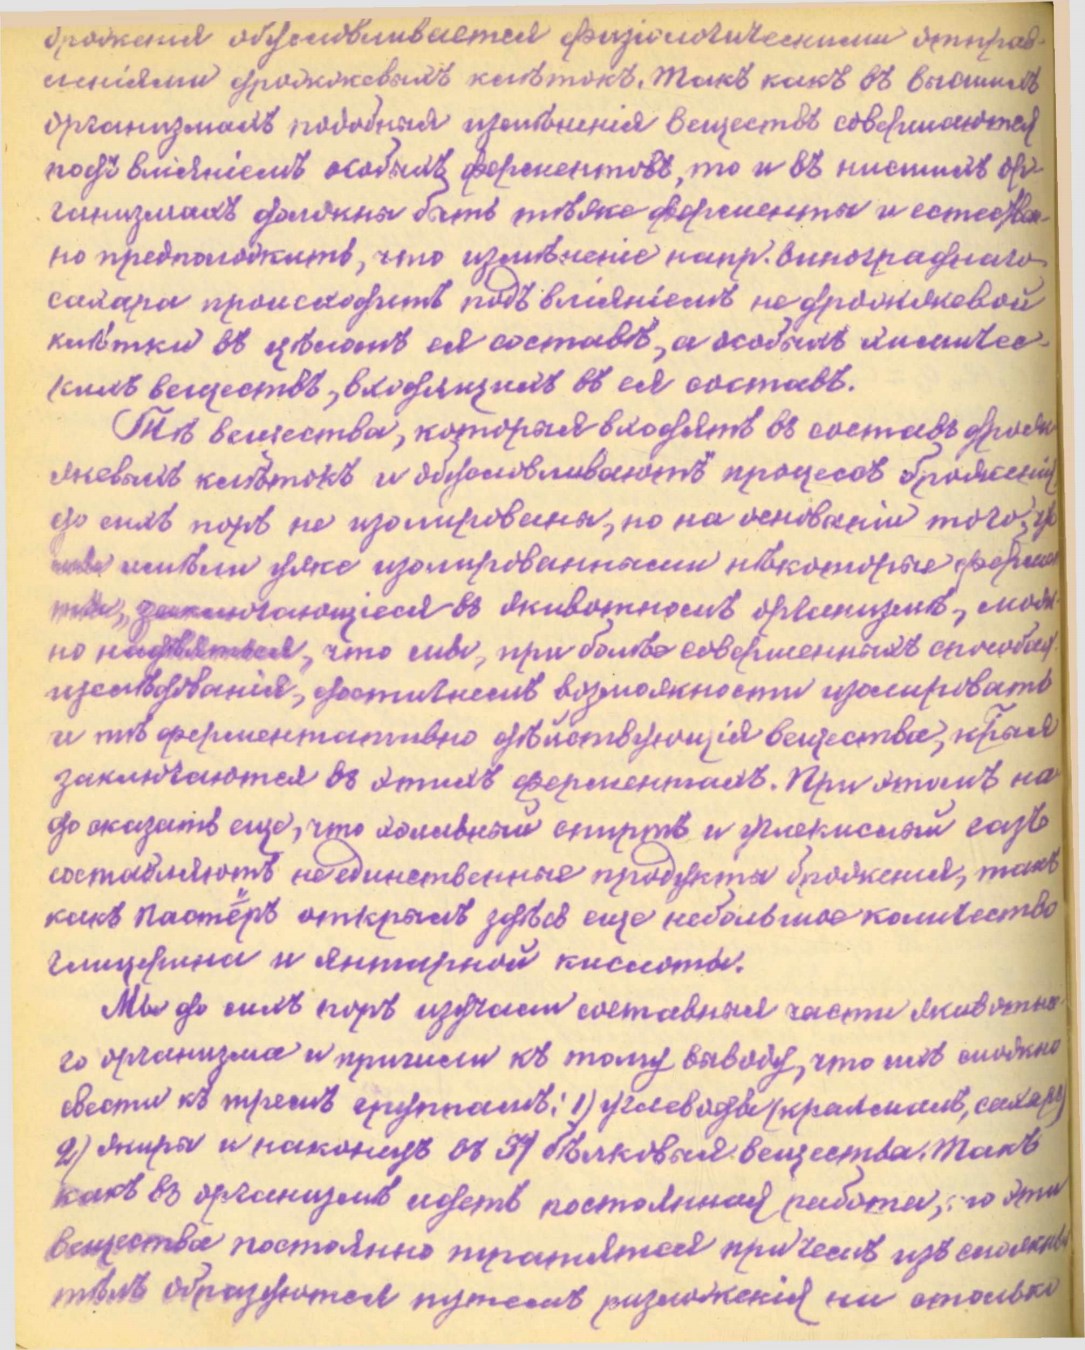 броженія обусловливается физіологическими отправ-
леніями дрожжевыхъ клѣтокъ. Такъ какъ въ высшихъ
организмахъ подобныя измѣненія веществъ совершаются
подъ вліяніемъ особыхъ ферментовъ, то и въ низшихъ ор-
ганизмахъ должны быть тѣже ферменты и естествен-
но предположить, что измѣненіе напр. винограднаго
сахара происходитъ подъ вліяніемъ не дрожжевой
клѣтки въ цѣломъ ея составѣ, а особыхъ химичес-
кихъ веществъ, входящихъ въ ея составъ.
Тѣ вещества, которыя входятъ въ составъ дрож-
жевыхъ клѣтокъ и обусловливаютъ процессъ броженія
до сихъ поръ не изолированы, но на основаніи того, что
мы имѣли уже изолированными нѣкоторые фермен
ты, заключающіеся въ животномъ организмѣ, мож-
но надѣяться, что мы, при болѣе совершенныхъ способахъ
изслѣдованія, достигнемъ возможности изолировать
и тѣ ферментативно дѣйствующія вещества, к'рыя
заключаются въ этихъ ферментахъ. При этомъ на
до сказать еще, что хольный спиртъ и углекислый газъ
составляютъ не единственные продукты броженія, такъ
какъ Пастёръ открылъ здѣсь еще небольшое количество
глицерина и янтарной кислоты.
Мы до сихъ поръ изучали составныя части животна-
го организма и пришли къ тому выводу, что ихъ можно
свести къ тремъ группамъ: 1) углеводы (крахмалъ, сахаръ)
2) жиры и наконецъ въ 3) бѣлковыя вещества. Такъ
какъ въ организмѣ идетъ постоянная работа, то эти
вещества постоянно тратятся причемъ изъ сложныхъ
тѣлъ образуются путемъ разложенія на столько